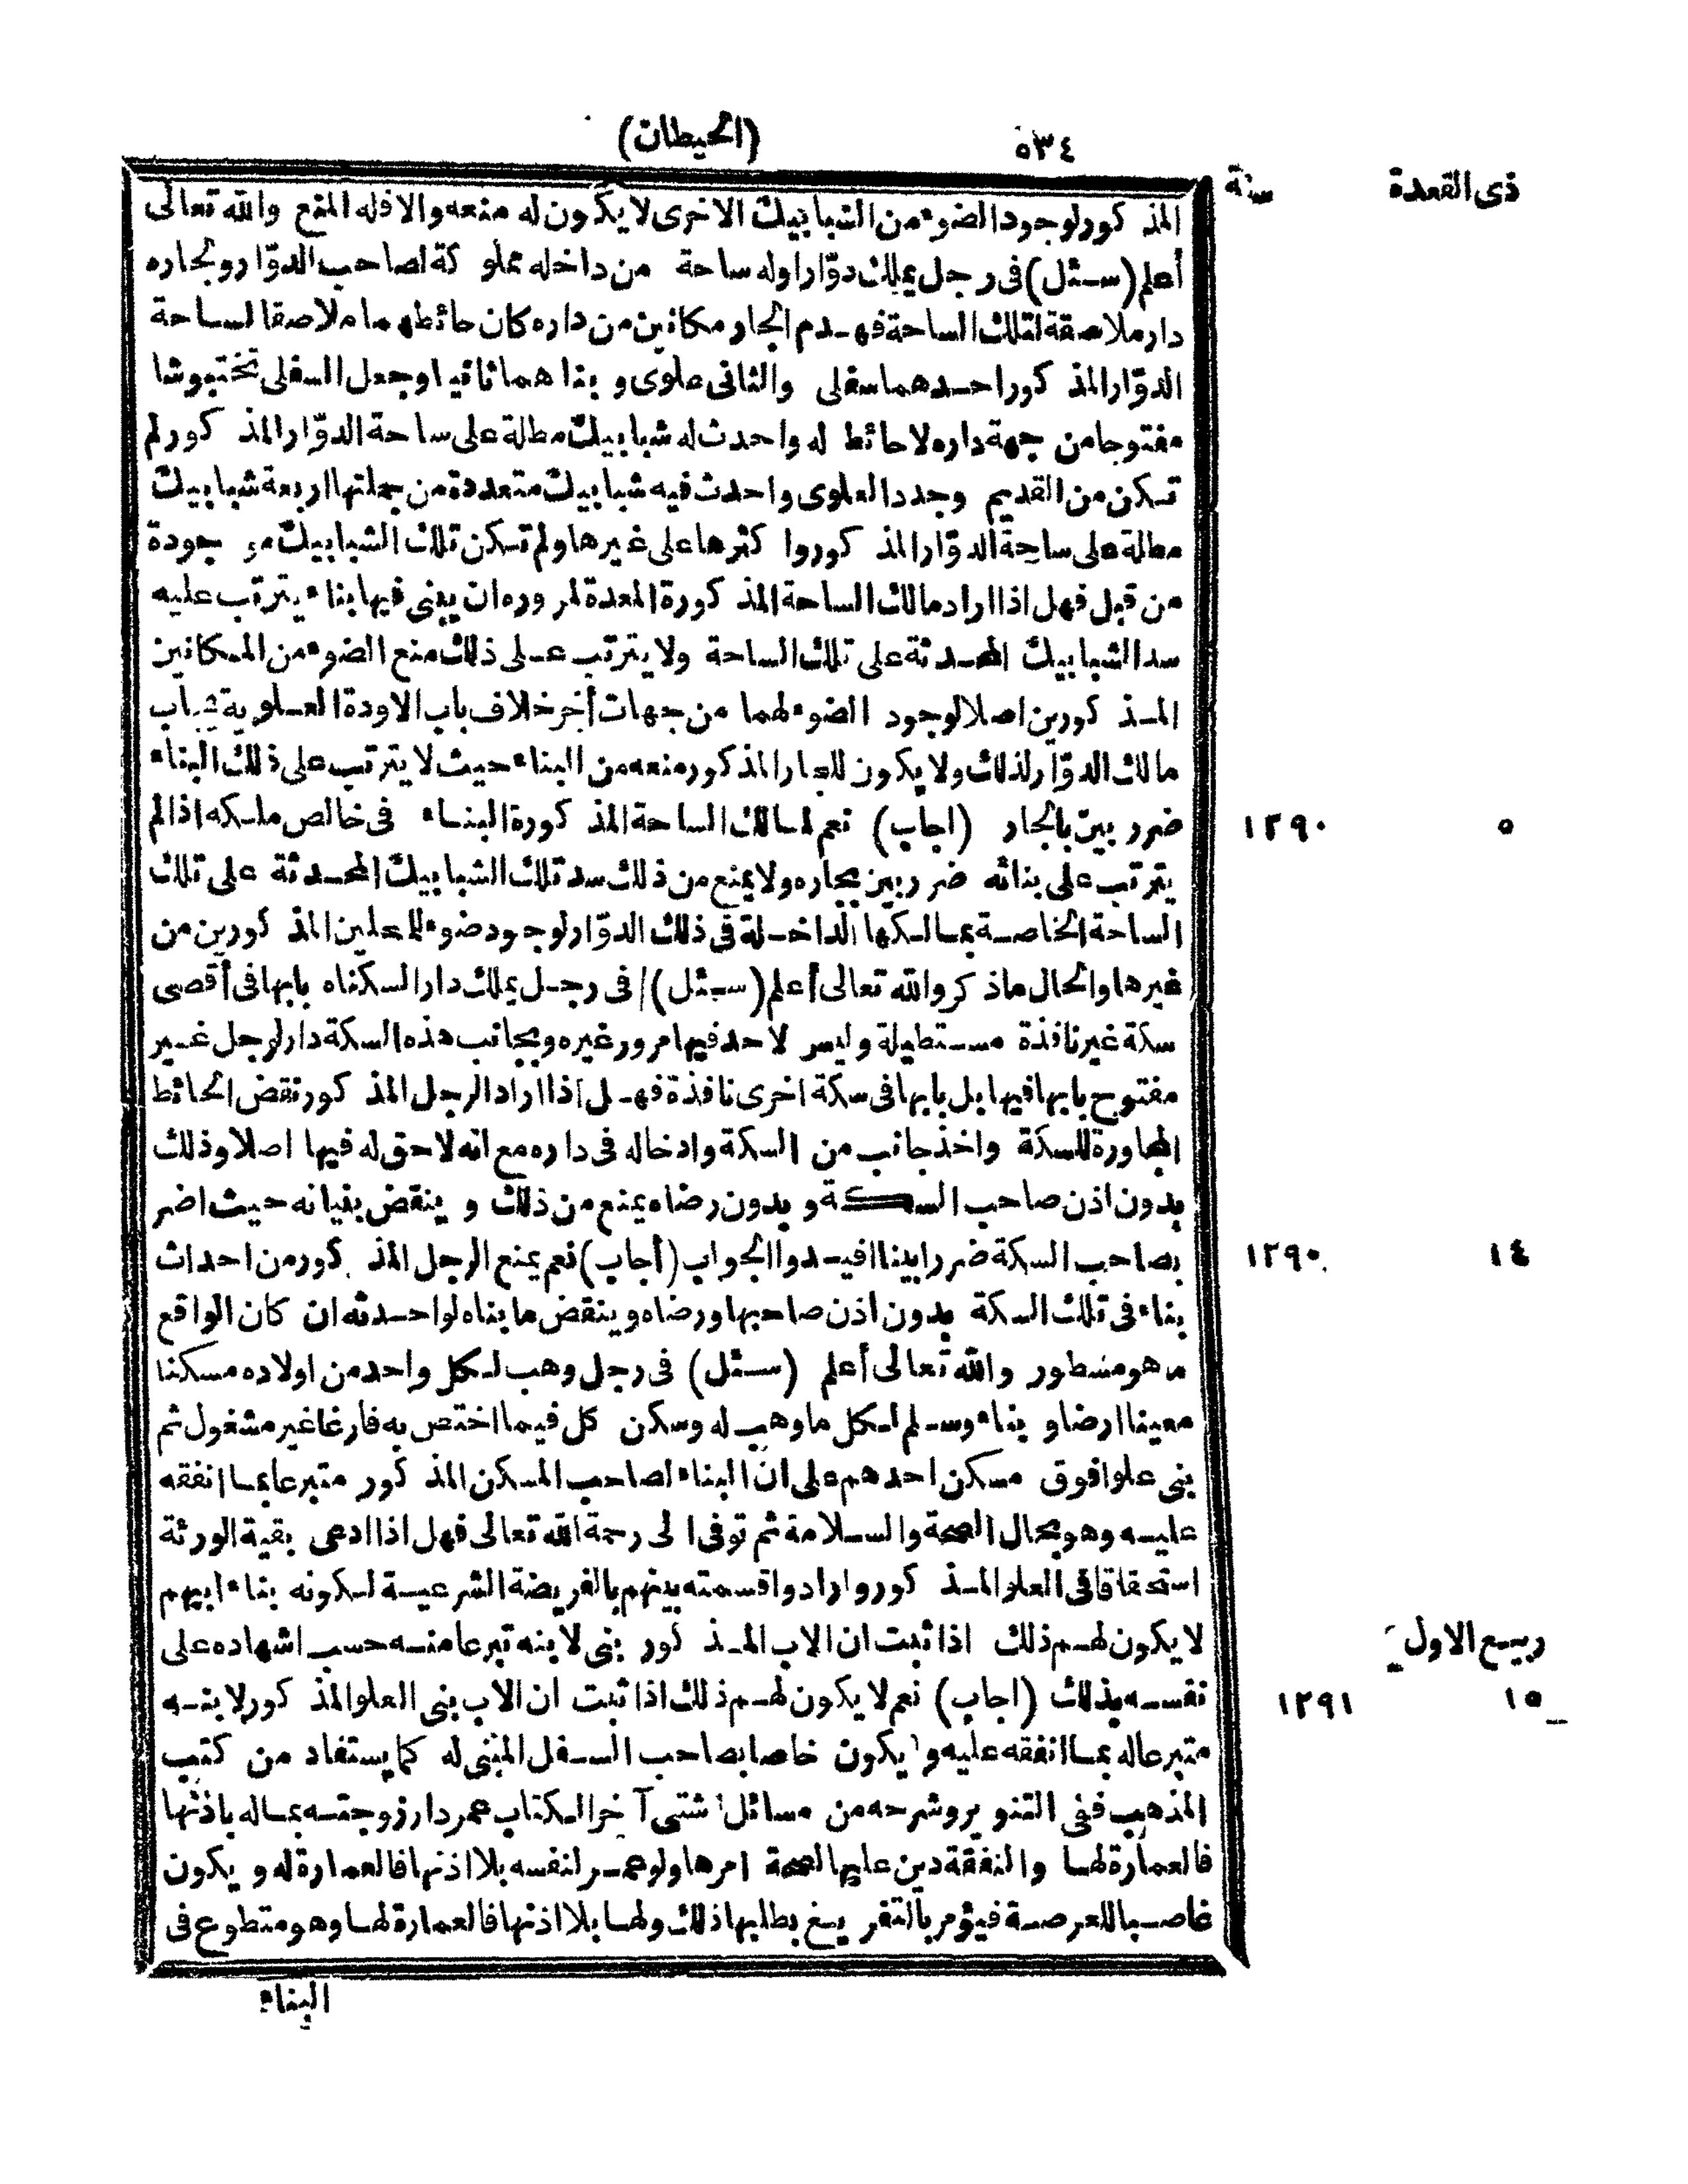 ٥٣٤ (الحيطان)
ذى القعدة سنة
المذكور لوجود الضوء من الشبابيك الاخرى لا يكون له منعه والا فله المنع والله تعالى
أعلم (سئل) فى رجل يملك دوّارا وله ساحة من داخله مملوكة لصاحب الدوّار ولجاره
دار ملاصقة لتلك الساحة فهدم الجار مكانين من داره كان حائطهما ملاصقا لساحة
الدوّار المذكور احدهما سفلى والثانى علوى وبناهما ثانيا وجعل السفلى تختبوشا
مفتوحا من جهة داره لا حائط له واحدث له شبابيك مطالة على ساحة الدوّار المذكور لم
تكن من القديم وجدد العلوى واحدث فيه شبابيك متعددة من جملتها اربعة شبابيك
مطالة على ساحة الدوّار المذكور وا كثرها على غيرها ولم تكن تلك الشبابيك موجودة
من قبل فهل اذا اراد مالك الساحة المذكورة المعدة لمروره ان يبنى فيها بناء يترتب عليه
سد الشبابيك المحدثة على تلك الساحة ولا يترتب على ذلك منع الضوء من المكانين
المذكورين اصلا لوجود الضوء لهما من جهات أخر خلاف باب الاودة العلوية يجاب
مالك الدوّار لذلك ولا يكون للجار المذكور منعه من البناء حيث لا يترتب على ذلك البناء
ضرر بين بالجار (اجاب) نعم لمالك الساحة المذكورة البناء فى خالص ملكه اذا لم
٥ ١٢٩٠
يترتب على بنائه ضرر بين بجاره ولا يمنع من ذلك سد تلك الشبابيك المحدثة على تلك
الساحة الخاصة بمالكها الداخلة فى ذلك الدوّار لوجود ضوء للمحلين المذكورين من
غيرها والحال ماذكر والله تعالى أعلم (سئل) فى رجل يملك دارا لسكناه بابها فى أقصى
سكة غير نافذة مستطيلة وليس لاحد فيها مرور غيره وبجانب هذه السكة دار لرجل غير
مفتوح بابها فيها بل بابها فى سكة اخرى نافذة فهل اذا اراد الرجل المذكور نقض الحائط
المجاورة للسكة واخذ جانب من السكة وادخاله فى داره مع انه لا حق له فيها اصلا وذلك
بدون اذن صاحب السكة وبدون رضاه يمنع من ذلك وينقض بنيانه حيث اضر
بصاحب السكة ضررا بينا افيدوا الجواب (أجاب) نعم يمنع الرجل المذكور من احداث
١٤ ١٢٩٠
بناء فى تلك السكة بدون اذن صاحبها ورضاه وينقض ما بناه لو احدثه ان كان الواقع
ما هو مسطور والله تعالى أعلم (سئل) فى رجل وهب لكل واحد من اولاده مسكنا
معينا ارضا وبناء وسلم لكل ما وهب له وسكن كل فيما اختص به فارغا غير مشغول ثم
بنى علوا فوق مسكن احدهم على ان البناء لصاحب المسكن المذكور متبرعا بما انفقه
عليه وهو بحال الصحة والسلامة ثم توفى الى رحمة الله تعالى فهل اذا ادعى بقية الورثة
استحقاقا فى العلو المذكور وارادوا قسمته بينهم بالفريضة الشرعية لكونه بناء ابيهم
لا يكون لهم ذلك اذا ثبت ان الاب المذكور بنى لابنه تبرعا منه حسب اشهاده على
ربيع الاول
نفسه بذلك (اجاب) نعم لا يكون لهم ذلك اذا ثبت ان الاب بنى العلو المذكور لابنه
١٥ ١٢٩١
متبرعاله بما انفقه عليه و يكون خاصا بصاحب السفل المبنى له كما يستفاد من كتب
المذهب ففى التنوير وشرحه من مسائل شتى آخر الكتاب عمر دار زوجته بماله باذنها
فالعمارة لها والنفقة دين عليها لصحة امرها ولو عمر لنفسه بلا اذنها فالعمارة له ويكون
غاصبا للعرصة فيؤمر بالتفريغ بطلبها ذلك ولها بلا اذنها فالعمارة لها وهو متطوع فى
البناء